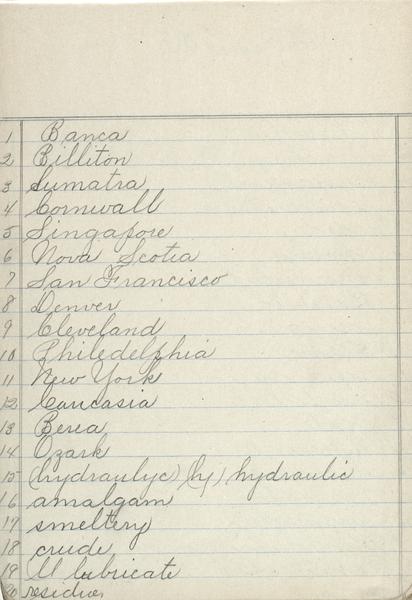 1 Banca
2 Billiton
3 Sumatra
4 Cornwall
5 Singapore
6 Nova Scotia
7 San Francisco
8 Denver
9 Cleveland
10 Philedelphia
11 New York
12 Caucasia
13 Berea
14 Ozark
15 (hydraulyc) (hy) hydraulic
16 amalgam
17 smeltery
18 crude
19 lubricate
20 residue